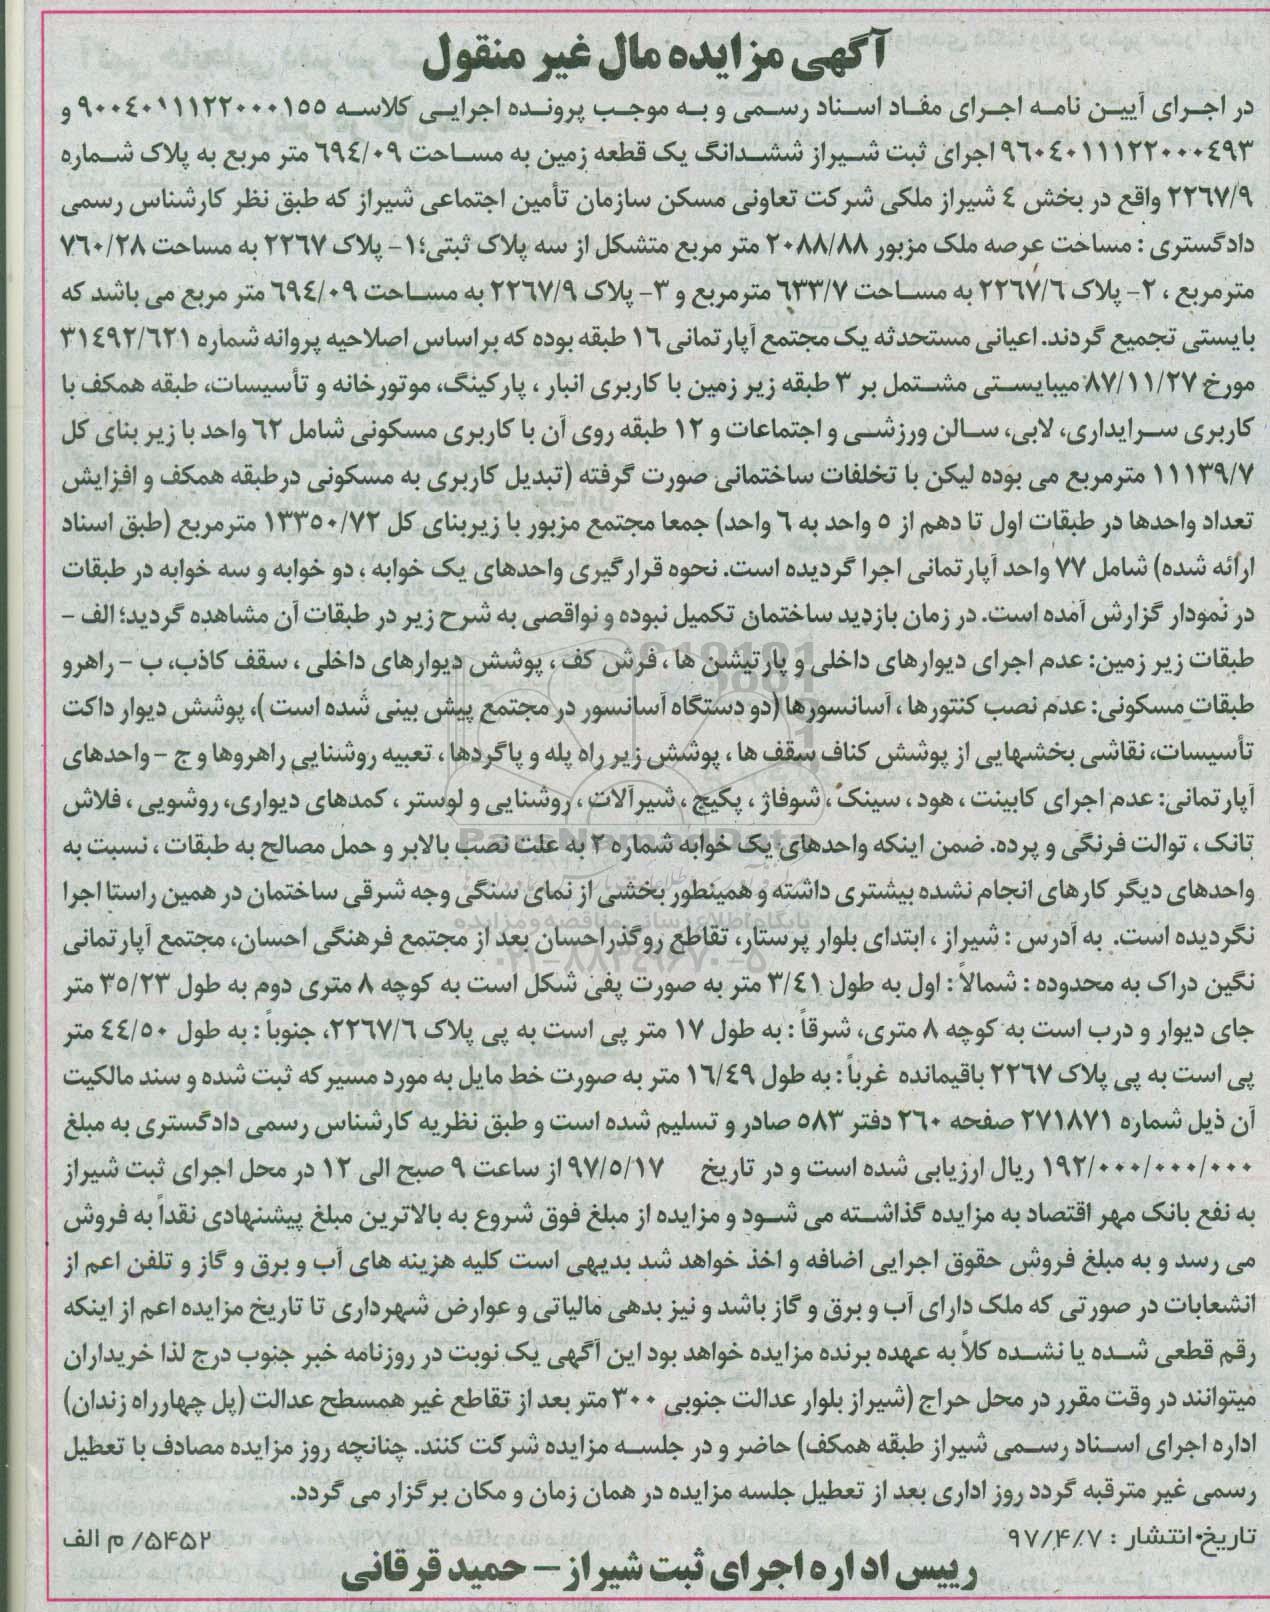 آگهی مزایده مال غیر منقول
در اجرای آیین نامه اجرای مفاد اسناد رسمی و به موجب پرونده اجرایی کلاسه ۹۰۰۴۰۱۱۱۲۲۰۰۰۱۵۵ و
۹۶۰۴۰۱۱۱۲۲۰۰۰۴۹۳ اجرای ثبت شیراز ششدانگ یک قطعه زمین به مساحت ۶۹۴/۰۹ متر مربع به پلاک شماره
۲۲۶۷/۹ واقع در بخش ۴ شیراز ملکی شرکت تعاونی مسکن سازمان تأمین اجتماعی شیراز که طبق نظر کارشناس رسمی
دادگستری : مساحت عرصه ملک مزبور ۲۰۸۸/۸۸ متر مربع متشکل از سه پلاک ثبتی؛۱- پلاک ۲۲۶۷ به مساحت ۷۶۰/۲۸
مترمربع ، ۲- پلاک ۲۲۶۷/۶ به مساحت ۶۳۳/۷ مترمربع و ۳- پلاک ۲۲۶۷/۹ به مساحت ۶۹۴/۰۹ متر مربع می باشد که
بایستی تجمیع گردند. اعیانی مستحدثه یک مجتمع آپارتمانی ۱۶ طبقه بوده که براساس اصلاحیه پروانه شماره ۳۱۴۹۲/۶۲۱
مورخ ۸۷/۱۱/۲۷ میبایستی مشتمل بر ۳ طبقه زیر زمین با کاربری انبار ، پارکینگ، موتورخانه و تأسیسات، طبقه همکف با
کاربری سرایداری، لابی، سالن ورزشی و اجتماعات و ۱۲ طبقه روی آن با کاربری مسکونی شامل ۶۲ واحد با زیر بنای کل
۱۱۱۳۹/۷ مترمربع می بوده لیکن با تخلفات ساختمانی صورت گرفته (تبدیل کاربری به مسکونی درطبقه همکف و افزایش
تعداد واحدها در طبقات اول تا دهم از ۵ واحد به ۶ واحد) جمعا مجتمع مزبور با زیربنای کل ۱۳۳۵۰/۷۲ مترمربع (طبق اسناد
ارائه شده) شامل ۷۷ واحد آپارتمانی اجرا گردیده است. نحوه قرارگیری واحدهای یک خوابه ، دو خوابه و سه خوابه در طبقات
در نمودار گزارش آمده است. در زمان بازدید ساختمان تکمیل نبوده و نواقصی به شرح زیر در طبقات آن مشاهده گردید؛ الف -
طبقات زیر زمین: عدم اجرای دیوارهای داخلی و پارتیشن ها ، فرش کف ، پوشش دیوارهای داخلی ، سقف کاذب، ب - راهرو
طبقات مسکونی: عدم نصب کنتورها ، آسانسورها (دو دستگاه آسانسور در مجتمع پیش بینی شده است )، پوشش دیوار داکت
تأسیسات، نقاشی بخشهایی از پوشش کناف سقف ها ، پوشش زیر راه پله و پاگردها ، تعبیه روشنایی راهروها و ج - واحدهای
آپارتمانی: عدم اجرای کابینت ، هود ، سینک ، شوفاژ ، پکیج ، شیرآلات ، روشنایی و لوستر ، کمدهای دیواری، روشویی ، فلاش
تانک ، توالت فرنگی و پرده. ضمن اینکه واحدهای یک خوابه شماره ۲ به علت نصب بالابر و حمل مصالح به طبقات ، نسبت به
واحدهای دیگر کارهای انجام نشده بیشتری داشته و همینطور بخشی از نمای سنگی وجه شرقی ساختمان در همین راستا اجرا
نگردیده است. به آدرس : شیراز ، ابتدای بلوار پرستار، تقاطع روگذراحسان بعد از مجتمع فرهنگی احسان، مجتمع آپارتمانی
نگین دراک به محدوده : شمالاً : اول به طول ۳/۴۱ متر به صورت پخی شکل است به کوچه ۸ متری دوم به طول ۳۵/۲۳ متر
جای دیوار و درب است به کوچه ۸ متری، شرقاً : به طول ۱۷ متر پی است به پی پلاک ۲۲۶۷/۶، جنوباً : به طول ۴۴/۵۰ متر
پی است به پی پلاک ۲۲۶۷ باقیمانده غرباً : به طول ۱۶/۴۹ متر به صورت خط مایل به مورد مسیرکه ثبت شده و سند مالکیت
آن ذیل شماره ۲۷۱۸۷۱ صفحه ۲۶۰ دفتر ۵۸۳ صادر و تسلیم شده است و طبق نظریه کارشناس رسمی دادگستری به مبلغ
۱۹۲/۰۰۰/۰۰۰/۰۰۰ ریال ارزیابی شده است و در تاریخ ۹۷/۵/۱۷ از ساعت ۹ صبح الی ۱۲ در محل اجرای ثبت شیراز
به نفع بانک مهر اقتصاد به مزایده گذاشته می شود و مزایده از مبلغ فوق شروع به بالاترین مبلغ پیشنهادی نقداً به فروش
می رسد و به مبلغ فروش حقوق اجرایی اضافه و اخذ خواهد شد بدیهی است کلیه هزینه های آب و برق و گاز و تلفن اعم از
انشعابات در صورتی که ملک دارای آب و برق و گاز باشد و نیز بدهی مالیاتی و عوارض شهرداری تا تاریخ مزایده اعم از اینکه
رقم قطعی شده یا نشده کلاً به عهده برنده مزایده خواهد بود این آگهی یک نوبت در روزنامه خبر جنوب درج لذا خریداران
میتوانند در وقت مقرر در محل حراج (شیراز بلوار عدالت جنوبی ۳۰۰ متر بعد از تقاطع غیر همسطح عدالت (پل چهارراه زندان)
اداره اجرای اسناد رسمی شیراز طبقه همکف) حاضر و در جلسه مزایده شرکت کنند. چنانچه روز مزایده مصادف با تعطیل
رسمی غیر مترقبه گردد روز اداری بعد از تعطیل جلسه مزایده در همان زمان و مکان برگزار می گردد.
تاریخ انتشار : ۹۷/۴/۷
۵۴۵۲/ م الف
رییس اداره اجرای ثبت شیراز - حمید قرقانی
ParsNamadData
پایگاه اطلاع رسانی مناقصه و مزایده
۰۲۱-۸۸۳۴۹۶۷۰-۵